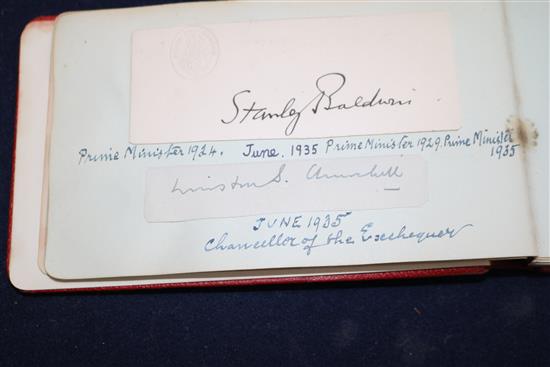 Stanley Baldwin
Prime Minister 1924. June. 1935 Prime Minister 1929. Prime Minister
1935
Winston S. Churchill
JUNE 1935
Chancellor of the Exchequer